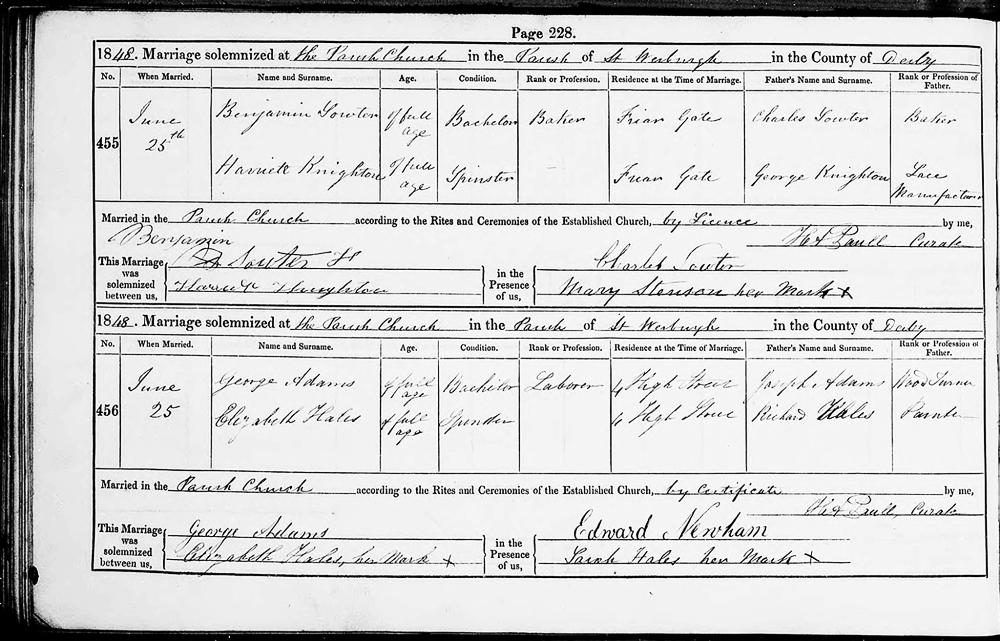 Page 228.
1848. Marriage solemnized at the Parish Church in the Parish of St Werburgh in the County of Derby
No. When Married. Name and Surname. Age. Condition. Rank or Profession. Residence at the Time of Marriage. Father's Name and Surname. Rank or Profession of Father.
455 June 25th Benjamin Sowter of full age Bachelor Baker Friar Gate Charles Sowter Baker
Harriett Knighton of full age Spinster Friar Gate George Knighton Lace Manufacturer
Married in the Parish Church according to the Rites and Ceremonies of the Established Church, by Licence by me,
Paull Curate
This Marriage was solemnized between us, Benjamin Sowter in the Presence of us, Charles Sowter
Harriet Mary Stenson her Mark x
1848. Marriage solemnized at the Parish Church in the Parish of St Werburgh in the County of Derby
No. When Married. Name and Surname. Age. Condition. Rank or Profession. Residence at the Time of Marriage. Father's Name and Surname. Rank or Profession of Father.
456 June 25 George Adams of full age Bachelor Laborer High Street Joseph Adams Wood Turner
Elizabeth Hales of full age Spinster High Street Richard Hales Painter
Married in the Parish Church according to the Rites and Ceremonies of the Established Church, by Certificate by me,
Paull, Curate
This Marriage was solemnized between us, George Adams in the Presence of us, Edward Newham
Elizabeth Hales, her Mark x Sarah Hales her Mark x